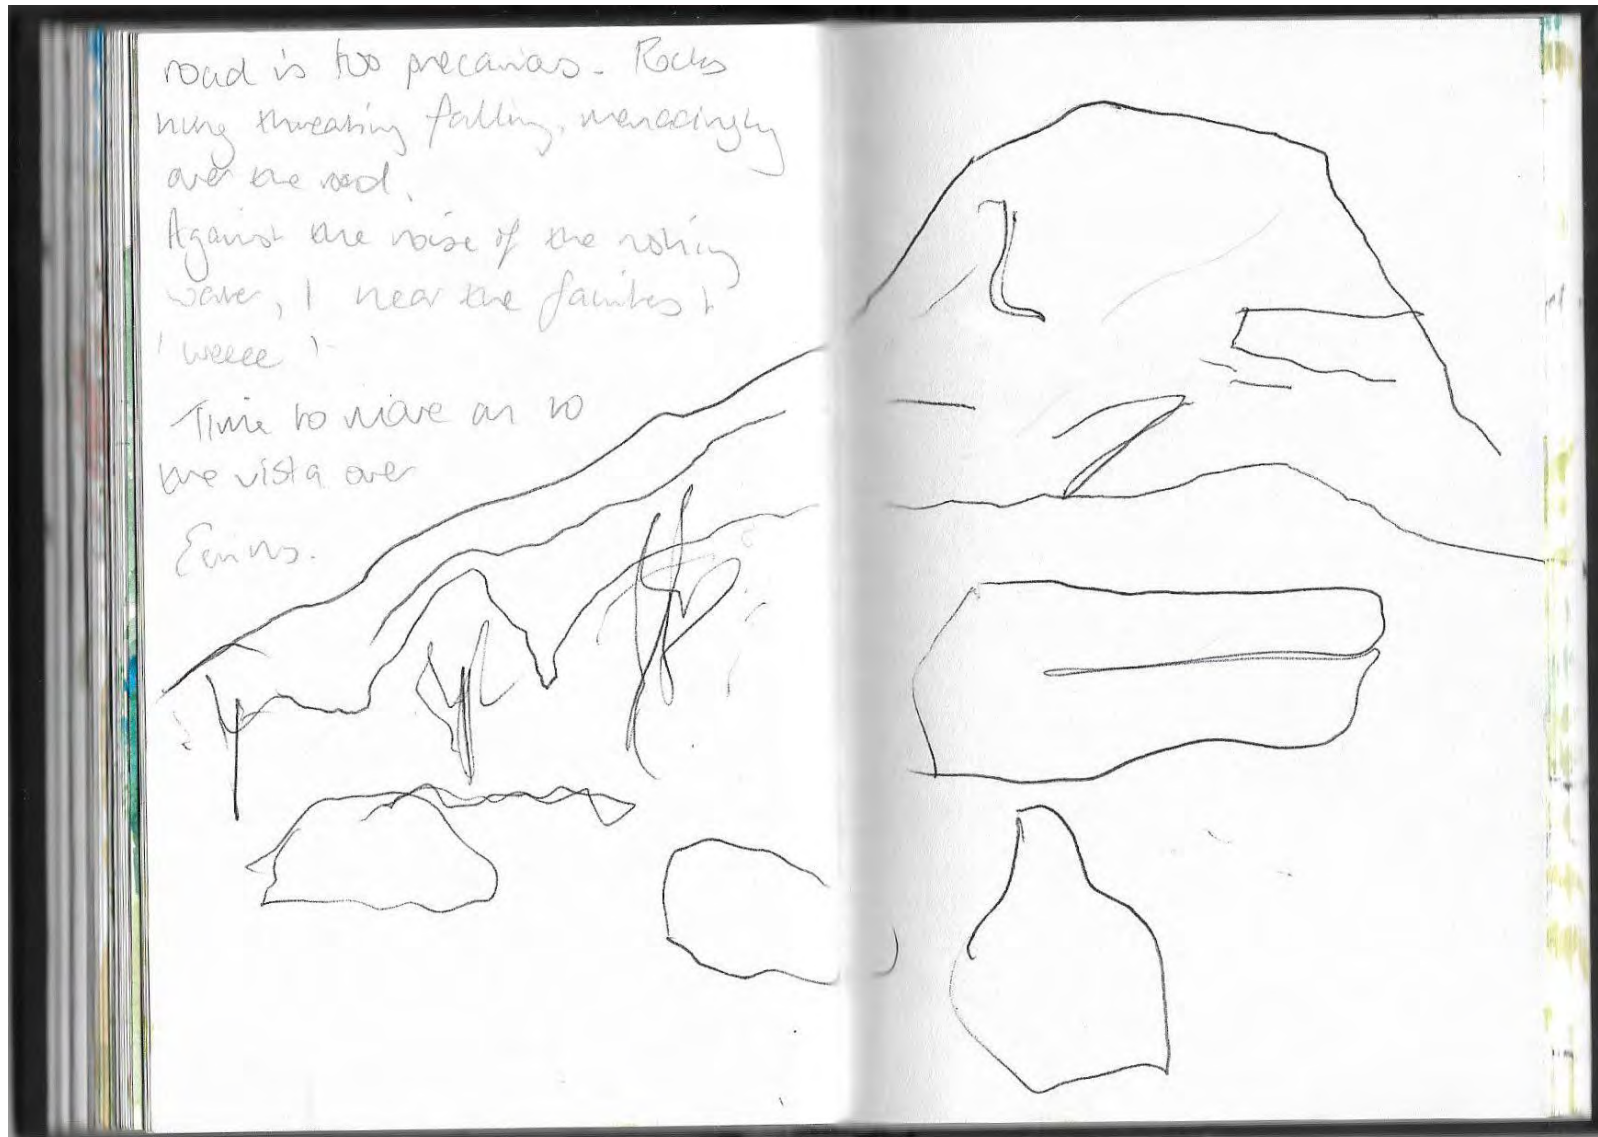 road is too precarious - Rocks
hung threating falling, menacingly
over the road.
Against the noise of the rushing
water, I hear the faintest
'weeee'!
Time to move on to
the vista over